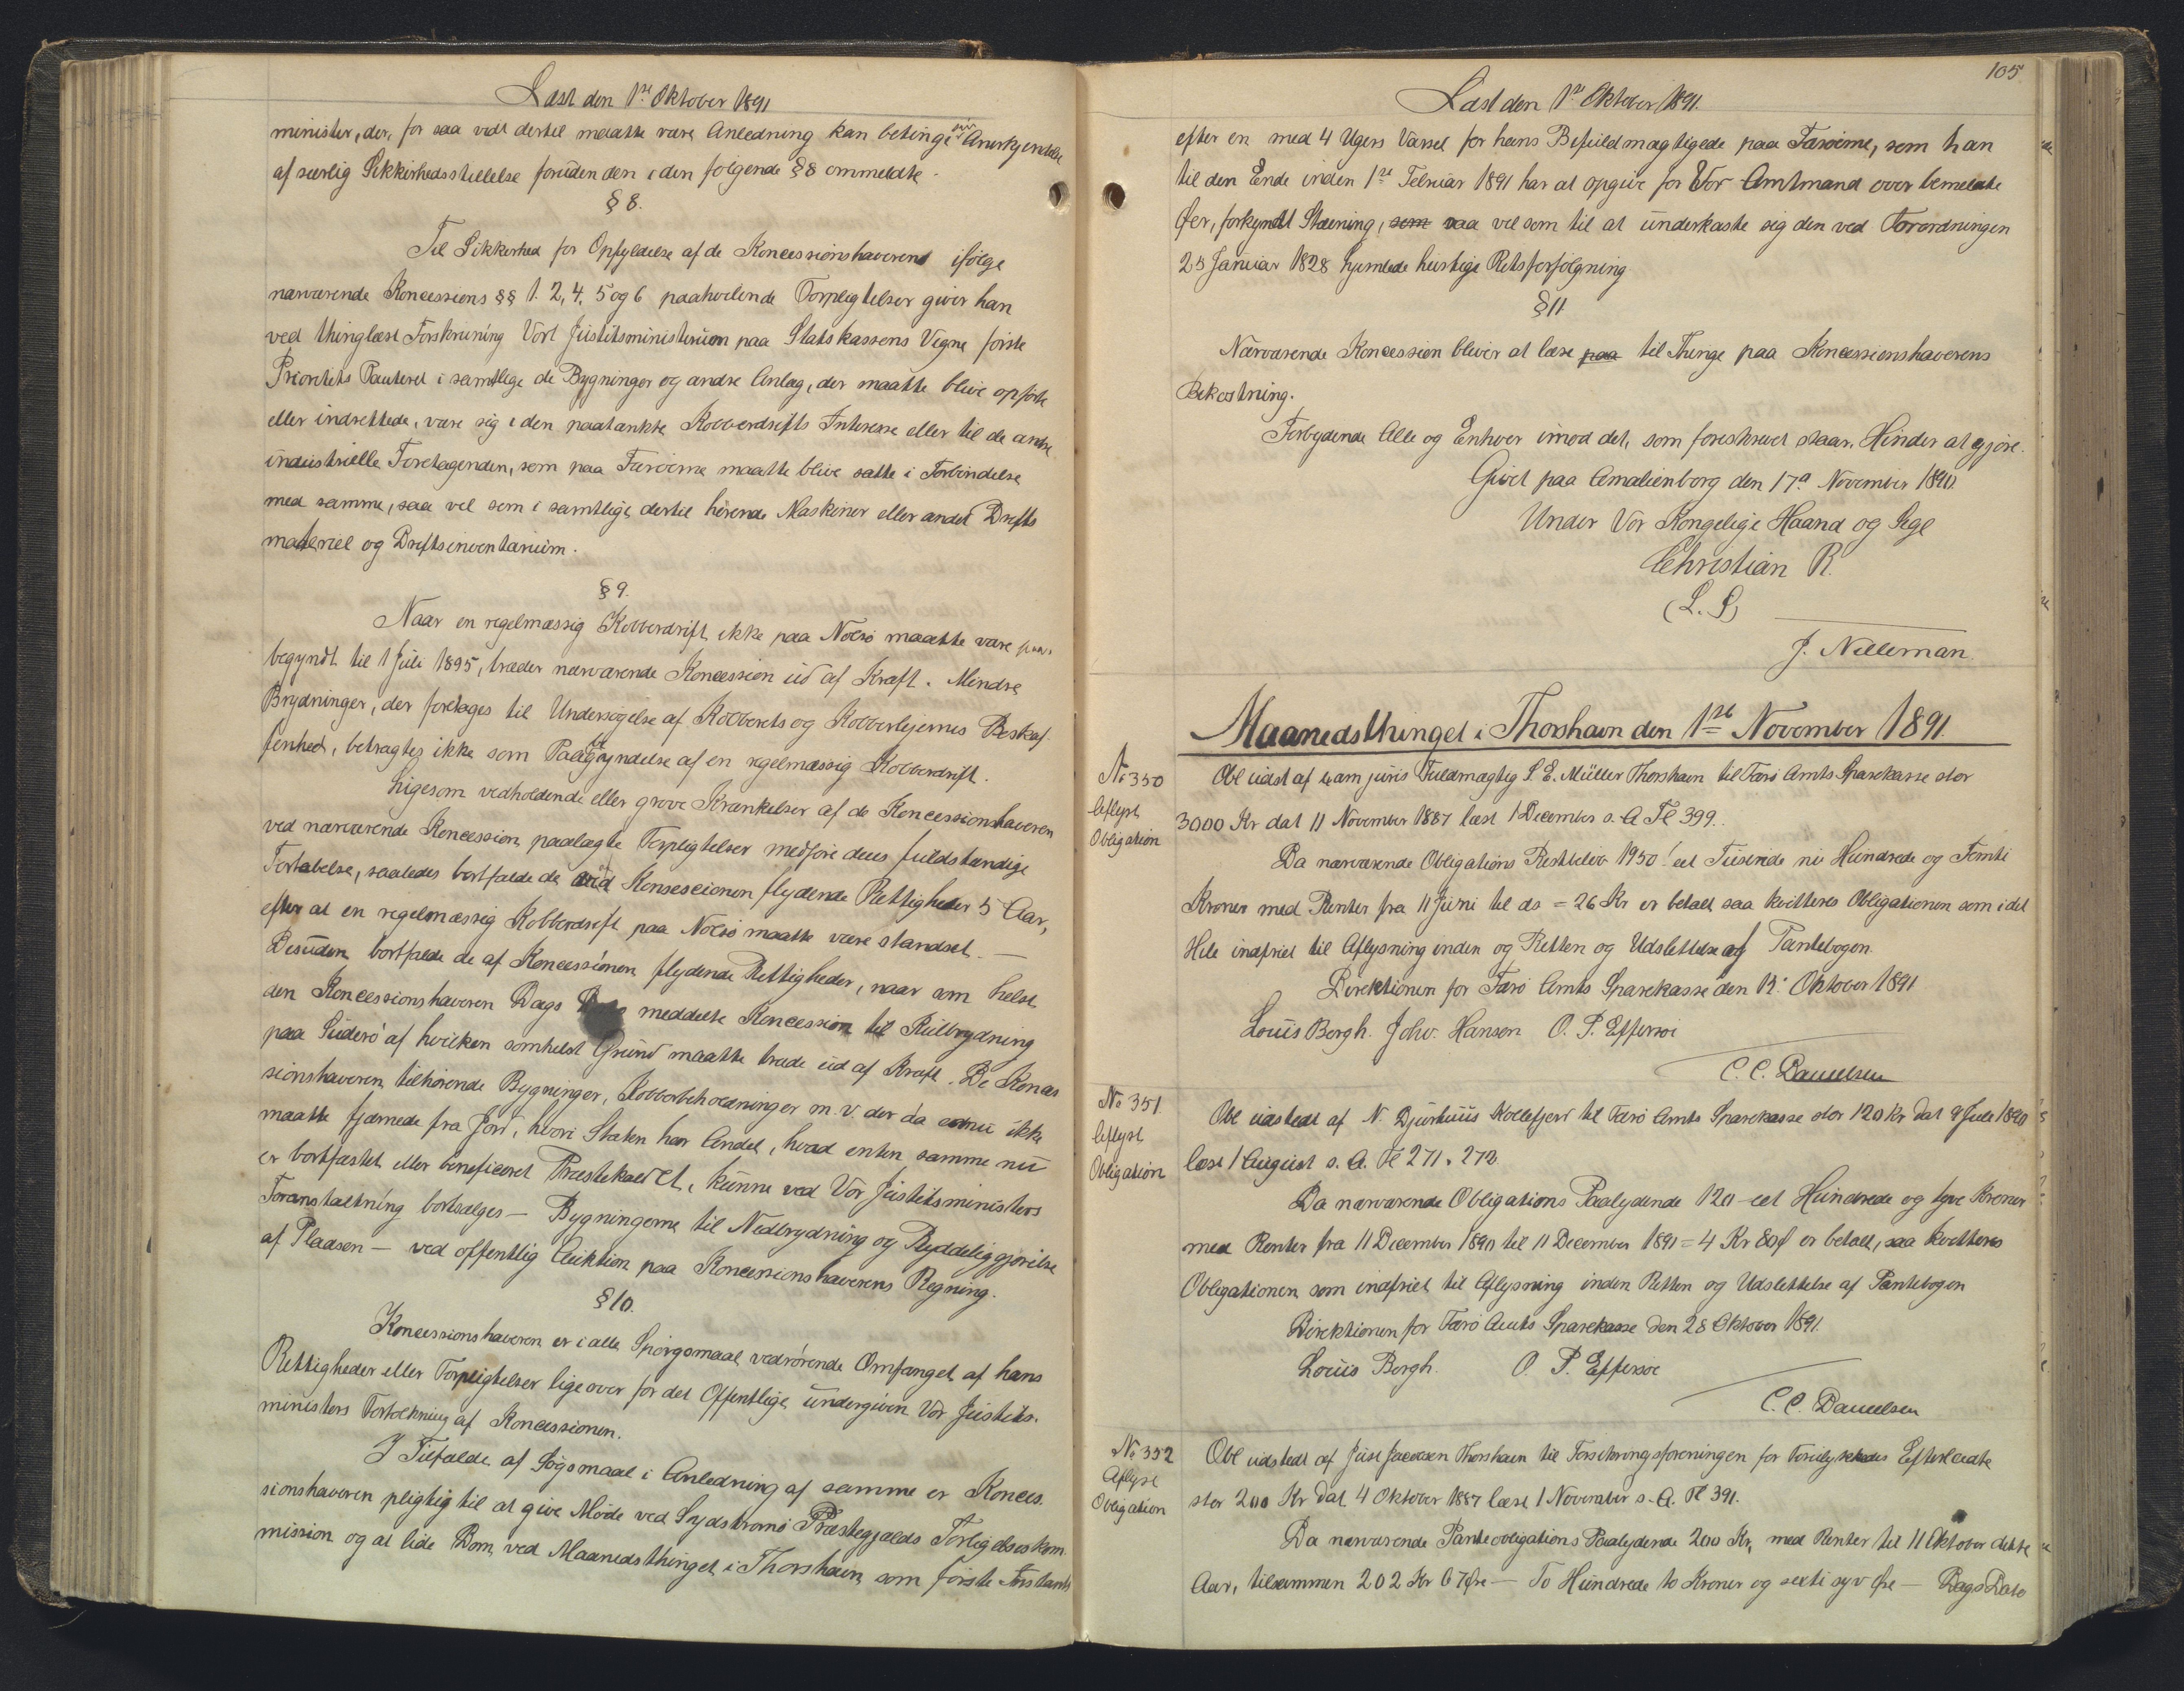 Læst den 1ste Oktober 1891
minister, der, for saa vidt dertil maatte være Anledning kan betinge sin Anerkjendelse
af særlig Sikkerhedsstillelse foruden den i den følgende §8 ommeldte.
§ 8.
Til Sikkerhed for Opfyldelse af de Koncessionshaverens ifølge
nærværende Koncessions §§ 1. 2, 4, 5 og 6 paahvilende Forpligtelser giver han
ved thinglæst Forskrivning Vort Justitsministerium paa Statskassens Vegne første
Prioritets Panteret i samtlige de Bygninger og andre Anlæg, der maatte blive opførte
eller indrettede, være sig i den paatænkte Kobberdrifts Interesse eller til de andre
industrielle Foretagender, som paa Færøerne maatte blive satte i Forbindelse
med samme, saa vel som i samtlige dertil hørende Maskiner eller andet Drifts
materiel og Driftsinventarium.
§ 9.
Naar en regelmæssig Kobberdrift ikke paa Nolsø maatte være paa-
begyndt til 1 Juli 1895, træder nærværende Koncession ud af Kraft. Mindre
Brydninger, der foretages til Undersøgelse af Kobberets og Kobberlejernes Beskaf-
fenhed, betragtes ikke som Paabegyndelse af en regelmæssig Kobberdrift.
Ligesom vedholdende eller grove Krænkelser af de Koncessionshaveren
ved nærværende Koncession paalagte Forpligtelser medføre dens fuldstændige
Fortabelse, saaledes bortfalde de ved Konsescionen flydende Rettigheder 5 Aar,
efter at en regelmæssig Kobberdrift paa Nolsø maatte være standset. —
Desuden bortfalde de af Koncessionen flydende Rettigheder, naar som helst
den Koncessionshaveren Dags meddelte Koncession til Kulbrydning
paa Suderø af hvilken somhelst Grund maatte træde ud af Kraft. De Konces
sionshaveren tilhørende Bygninger, Kobberbeholdninger m. v. der da endnu ikke
maatte fjærnede fra Jord, hvori Staten har Andel, hvad enten samme nu
er bortfæstet eller beneficeret Præstekaldet, kunne ved Vor Justitsministers
Foranstaltning bortsælges — Bygningerne til Nedbrydning og Ryddeliggjørelse
af Pladsen — ved offentlig Auktion paa Koncessionshaverens Regning.
§ 10.
Koncessionshaveren er i alle Spørgsmaal vedrørende Omfanget af hans
Rettigheder eller Forpligtelser lige over for det Offentlige undergiven Vor Justits-
ministers Fortolkning af Koncessionen.
I Tilfælde af Søgsmaal i Anledning af samme er Konces-
sionshaveren pligtig til at give Møde ved Sydstrømø Præstegjælds Forligelseskom-
mission og at lide Dom ved Maanedsthinget i Thorshavn som første Instants
105
Læst den 1ste Oktober 1891.
efter en med 4 Ugers Varsel for hans Befuldmægtigede paa Færøerne, som han
til den Ende inden 1ste Februar 1891 har at opgive for Vor Amtmand over bemeldte
Øer, forkyndt Stævning, som saa vel som til at underkaste sig den ved Forordningen
25 Januar 1828 hjemlede hurtige Retsforfølgning
§ 11
Nærværende Koncession bliver at læse paa til Thinge paa Koncessionshaverens
Bekostning.
Forbydende Alle og Enhver imod det, som foreskrevet staar, Hinder at gjøre.
Givet paa Amalienborg den 17de November 1890.
Under Vor Kongelige Haand og Segl
Christian R.
(L. S)
J. Nelleman
Maanedsthinget i Thorshavn den 1ste November 1891.
No 350
Aflyst
Obligation
Obl udst af exam juris Fuldmægtig S. E. Müller Thorshavn til Færø Amts Sparekasse stor
3000 Kr dat 11 November 1887 læst 1 December s. A Fl 399.
Da nærværende Obligations Restbeløb 1950! eet Tusinde ni Hundrede og Femti
Kroner med Renter fra 11 Juni til ds = 26 Kr er betalt saa kvitteres Obligationen som i det
Hele indfriet til Aflysning inden og Retten og Udslettelse af Pantebogen.
Direktionen for Færø Amts Sparekasse den 15. Oktober 1891
Louis Bergh. Johs. Hansen O. P. Effersøe
C. C. Danielsen
No 351.
Aflyst
Obligation
Obl udstedt af N. Djurhuus Kollefjord til Færø Amts Sparekasse stor 120 Kr dat 9 Juli 1890
læst 1 August s. A. Fl 271, 272.
Da nærværende Obligations Paalydende 120 – eet Hundrede og tyve Kroner
med Renter fra 11 December 1890 til 11 December 1891 = 4 Kr 80ø er betalt, saa kvitteres
Obligationen som indfriet til Aflysning inden Retten og Udslettelse af Pantebogen
Direktionen for Færø Amts Sparekasse den 28 Oktober 1891.
Louis Bergh. O. P. Effersøe
C. C. Danielsen
No 352
Aflyst
Obligation
Obl udstedt af Just Jacobsen Thorshavn til Forsikringsforeningen for Forulykkedes Efterladte
stor 200 Kr dat 4 Oktober 1887 læst 1 November s. A. Fl 391.
Da nærværende Panteobligations Paalydende 200 Kr, med Renter til 11 Oktober dette
Aar, tilsammen 202 Kr 67 Øre — To Hundrede to Kroner og sexti syv Øre — Dags Dato